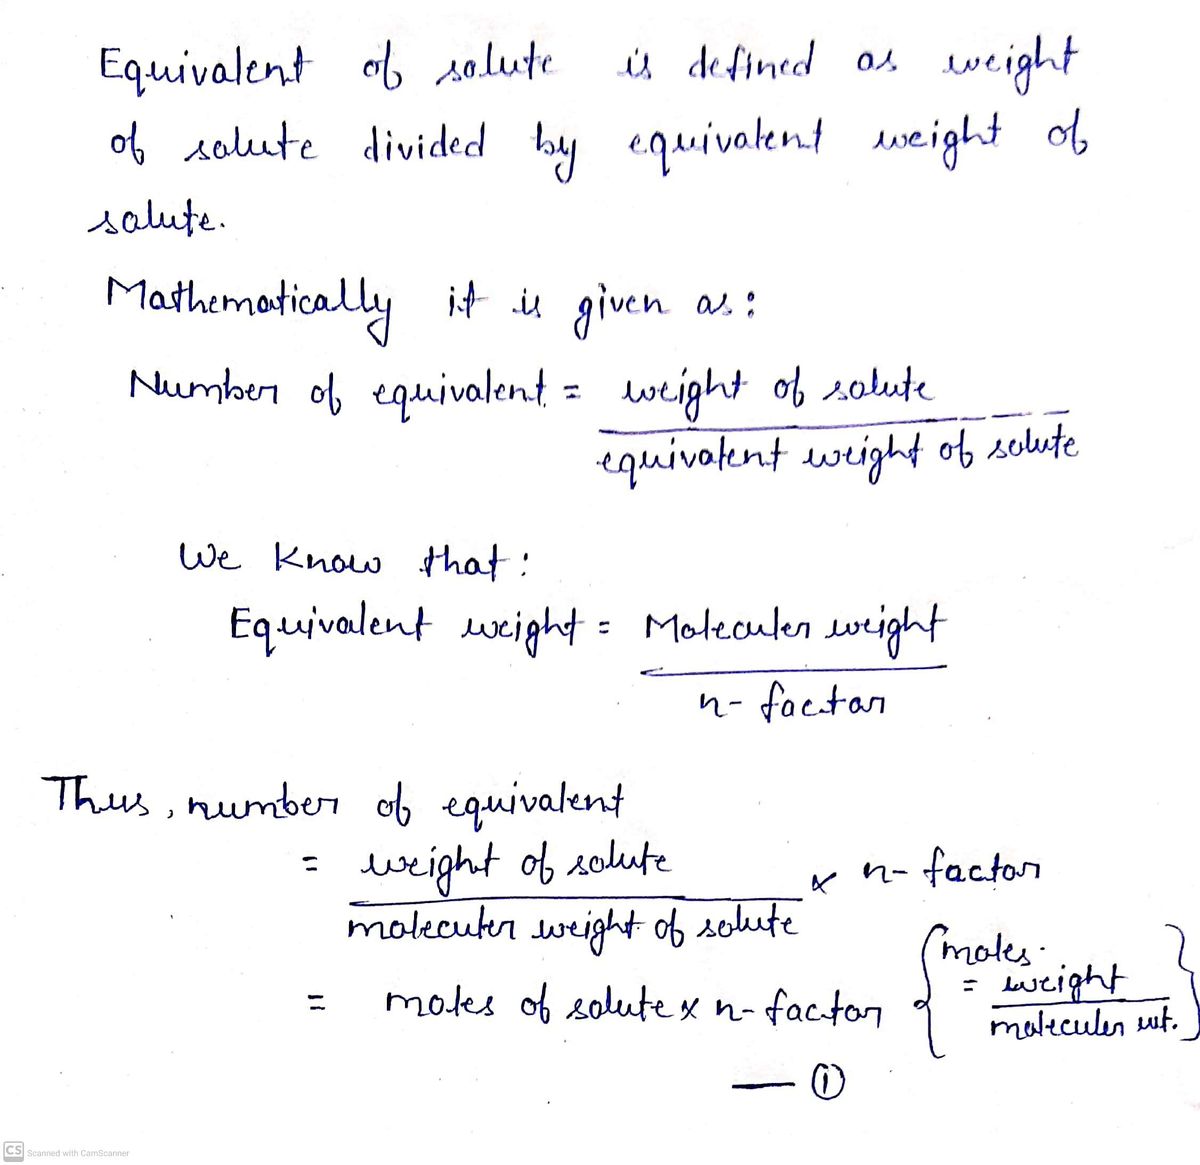 Equivalent of solute is defined as weight
of solute divided by equivalent weight of
solute.
Mathematically it is given as:
Number of equivalent = weight of solute
equivalent weight of solute
We know that:
Equivalent weight = Moleculer weight
n-factor
Thus, number of equivalent
= weight of solute × n-factor
moleculer weight of solute
= moles of solute × n-factor { moles.
= weight
moleculer wt. }
— ①
CS Scanned with CamScanner